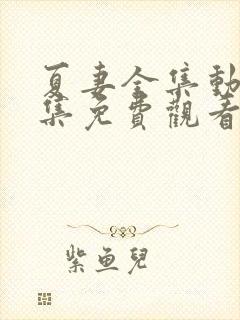 夏妻全集動
集免費觀看
紫魚兒